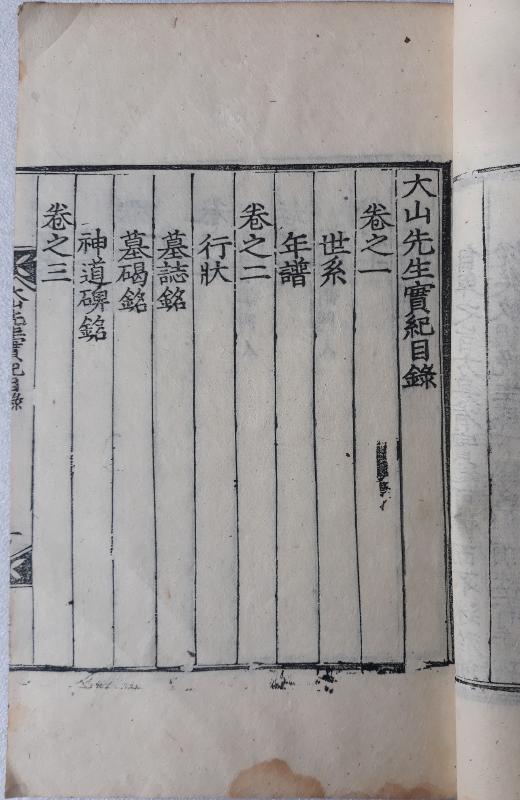 大山先生實紀目錄
卷之一
世系
年譜
卷之二
行狀
墓誌銘
墓碣銘
神道碑銘
卷之三
大山先生實紀目錄